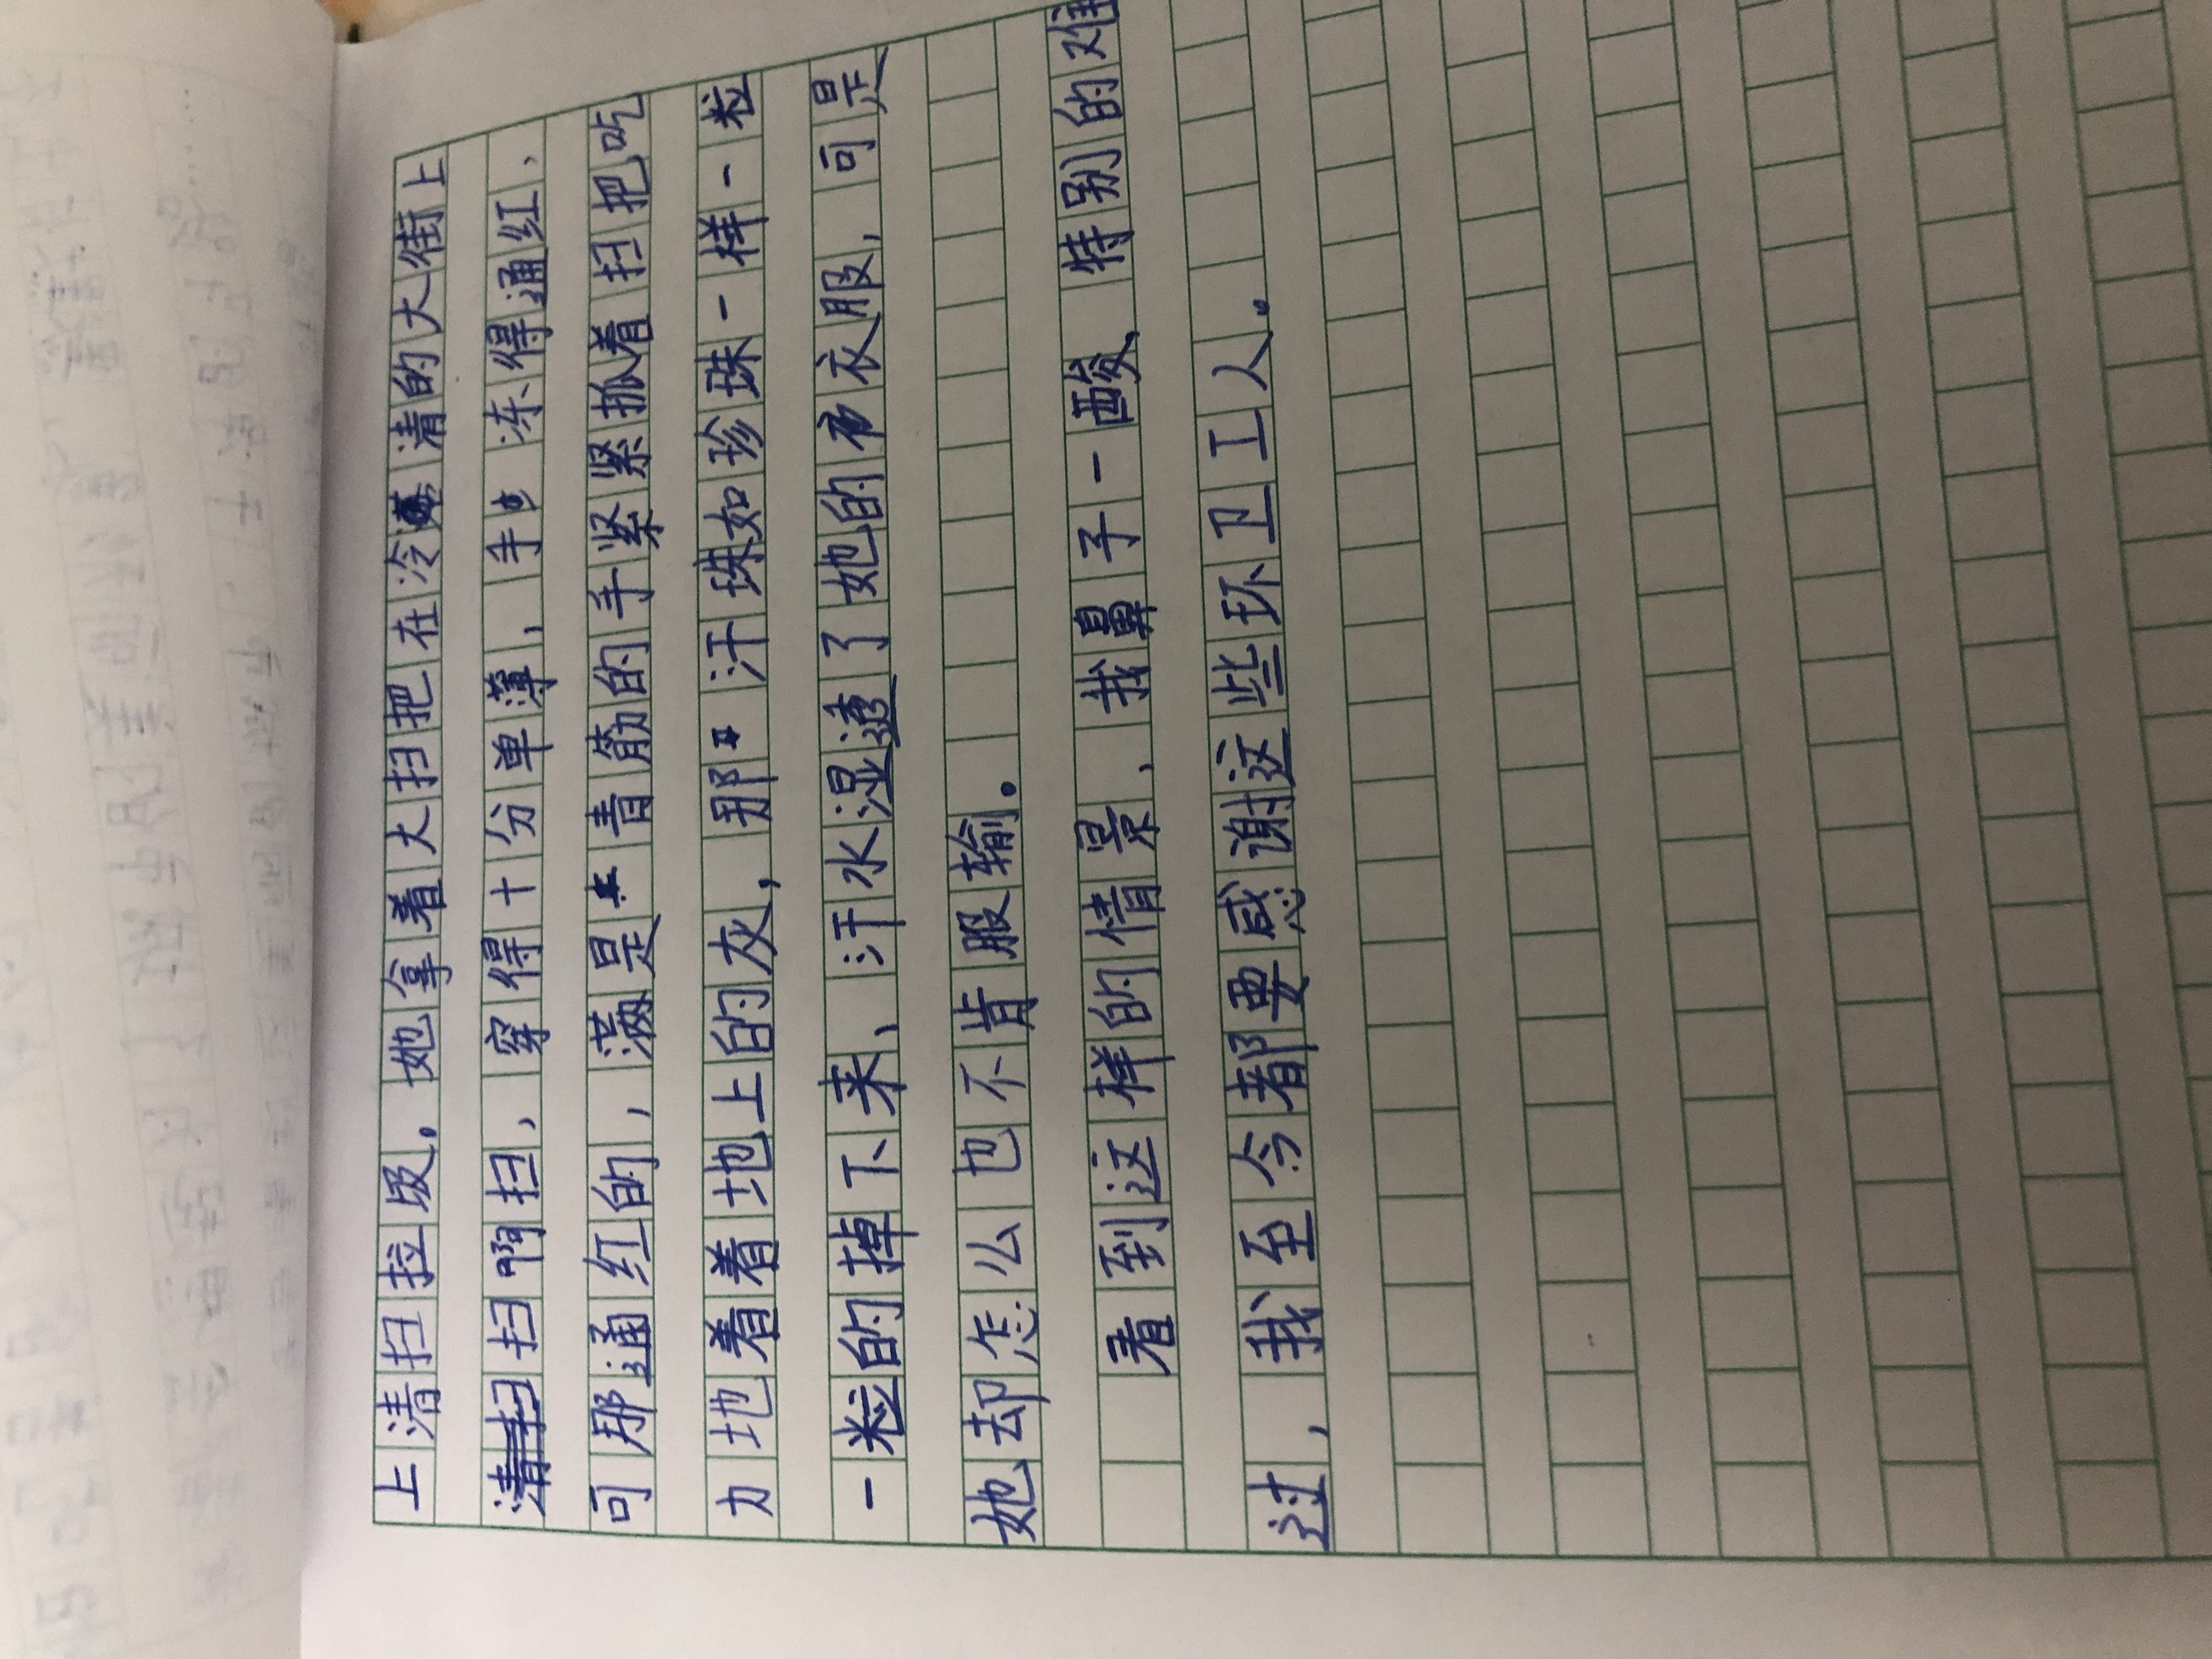 上清扫拉圾。她拿着大扫把在冷清的大街上
清扫扫啊扫，穿得十分单薄，手冻得通红，
可那通红的，满是青筋的手紧紧抓着扫把吃
力地着着地上的灰，那汗珠如珍珠一样一粒
一粒的掉下来，汗水湿透了她的衣服，可是
她却怎么也不肯服输。
看到这样的情景，我鼻子一酸，特别的难
过，我至今都要感谢这些环卫工人。